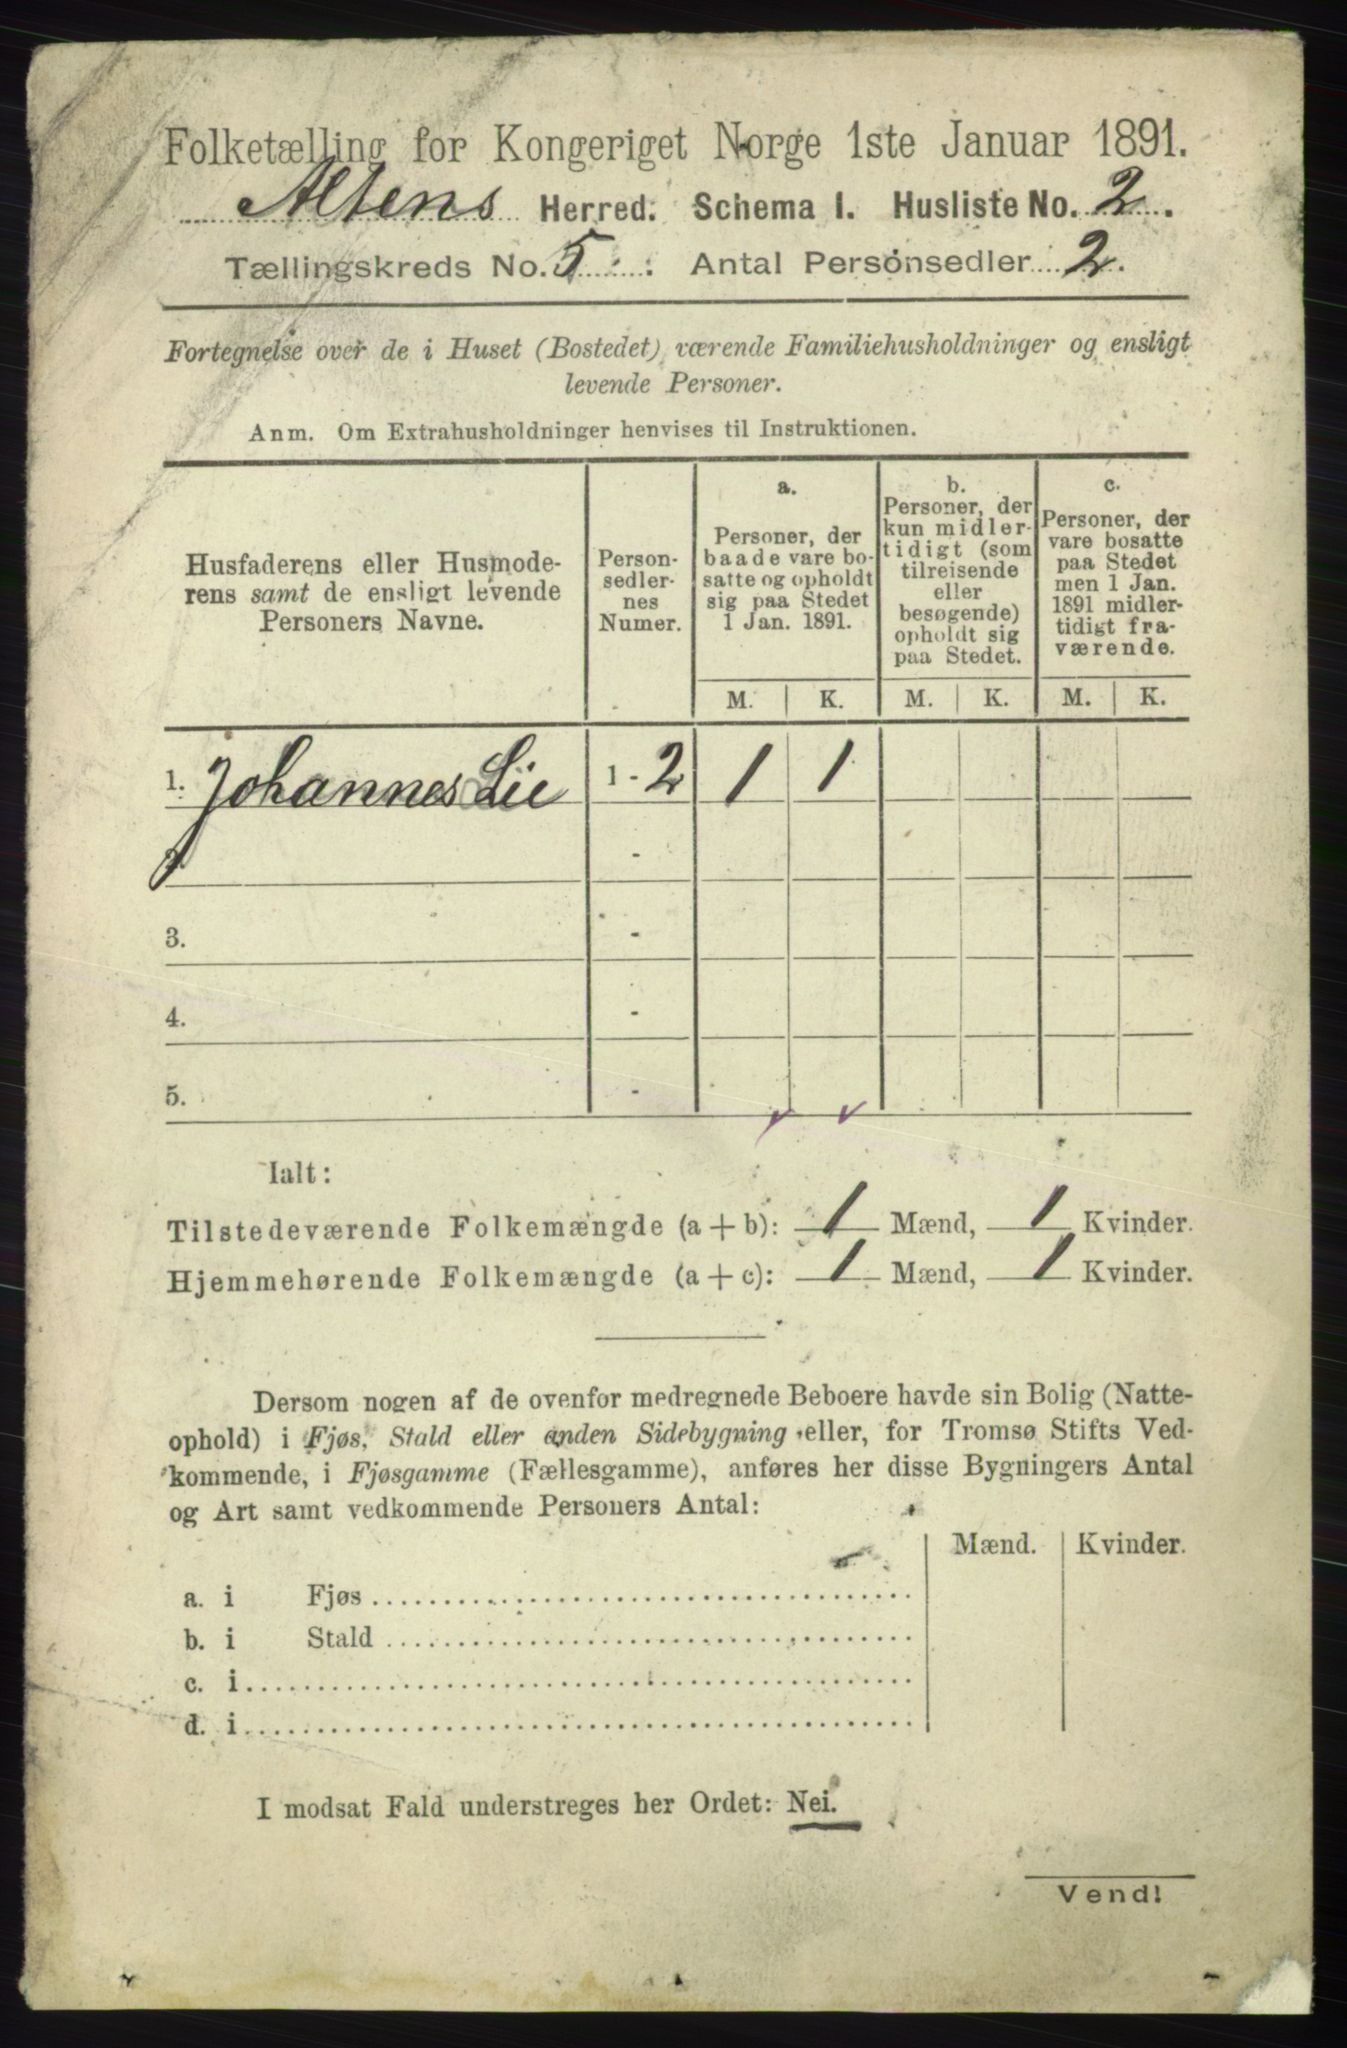 Folketælling for Kongeriget Norge 1ste Januar 1891.
Altens Herred. Schema I. Husliste No. 2.
Tællingskreds No. 5. Antal Personsedler 2.
Fortegnelse over de i Huset (Bostedet) værende Familiehusholdninger og ensligt
levende Personer.
Anm. Om Extrahusholdninger henvises til Instruktionen.
Husfaderens eller Husmode-
rens samt de ensligt levende
Personers Navne.
Person-
sedler-
nes
Numer.
a.
Personer, der
baade vare bo-
satte og opholdt
sig paa Stedet
1 Jan. 1891.
b.
Personer, der
kun midler-
tidigt (som
tilreisende
eller
besøgende)
opholdt sig
paa Stedet.
c.
Personer, der
vare bosatte
paa Stedet
men 1 Jan.
1891 midler-
tidigt fra-
værende.
M. K. M. K. M. K.
1. Johannes Lie 1 - 2 1 1
2. -
3. -
4. -
5. -
Ialt:
Tilstedeværende Folkemængde (a + b): 1 Mænd, 1 Kvinder.
Hjemmehørende Folkemængde (a + c): 1 Mænd, 1 Kvinder.
Dersom nogen af de ovenfor medregnede Beboere havde sin Bolig (Natte-
ophold) i Fjøs, Stald eller anden Sidebygning eller, for Tromsø Stifts Ved-
kommende, i Fjøsgamme (Fællesgamme), anføres her disse Bygningers Antal
og Art samt vedkommende Personers Antal:
Mænd. Kvinder.
a. i Fjøs
b. i Stald
c. i
d. i
I modsat Fald understreges her Ordet: Nei.
Vend!